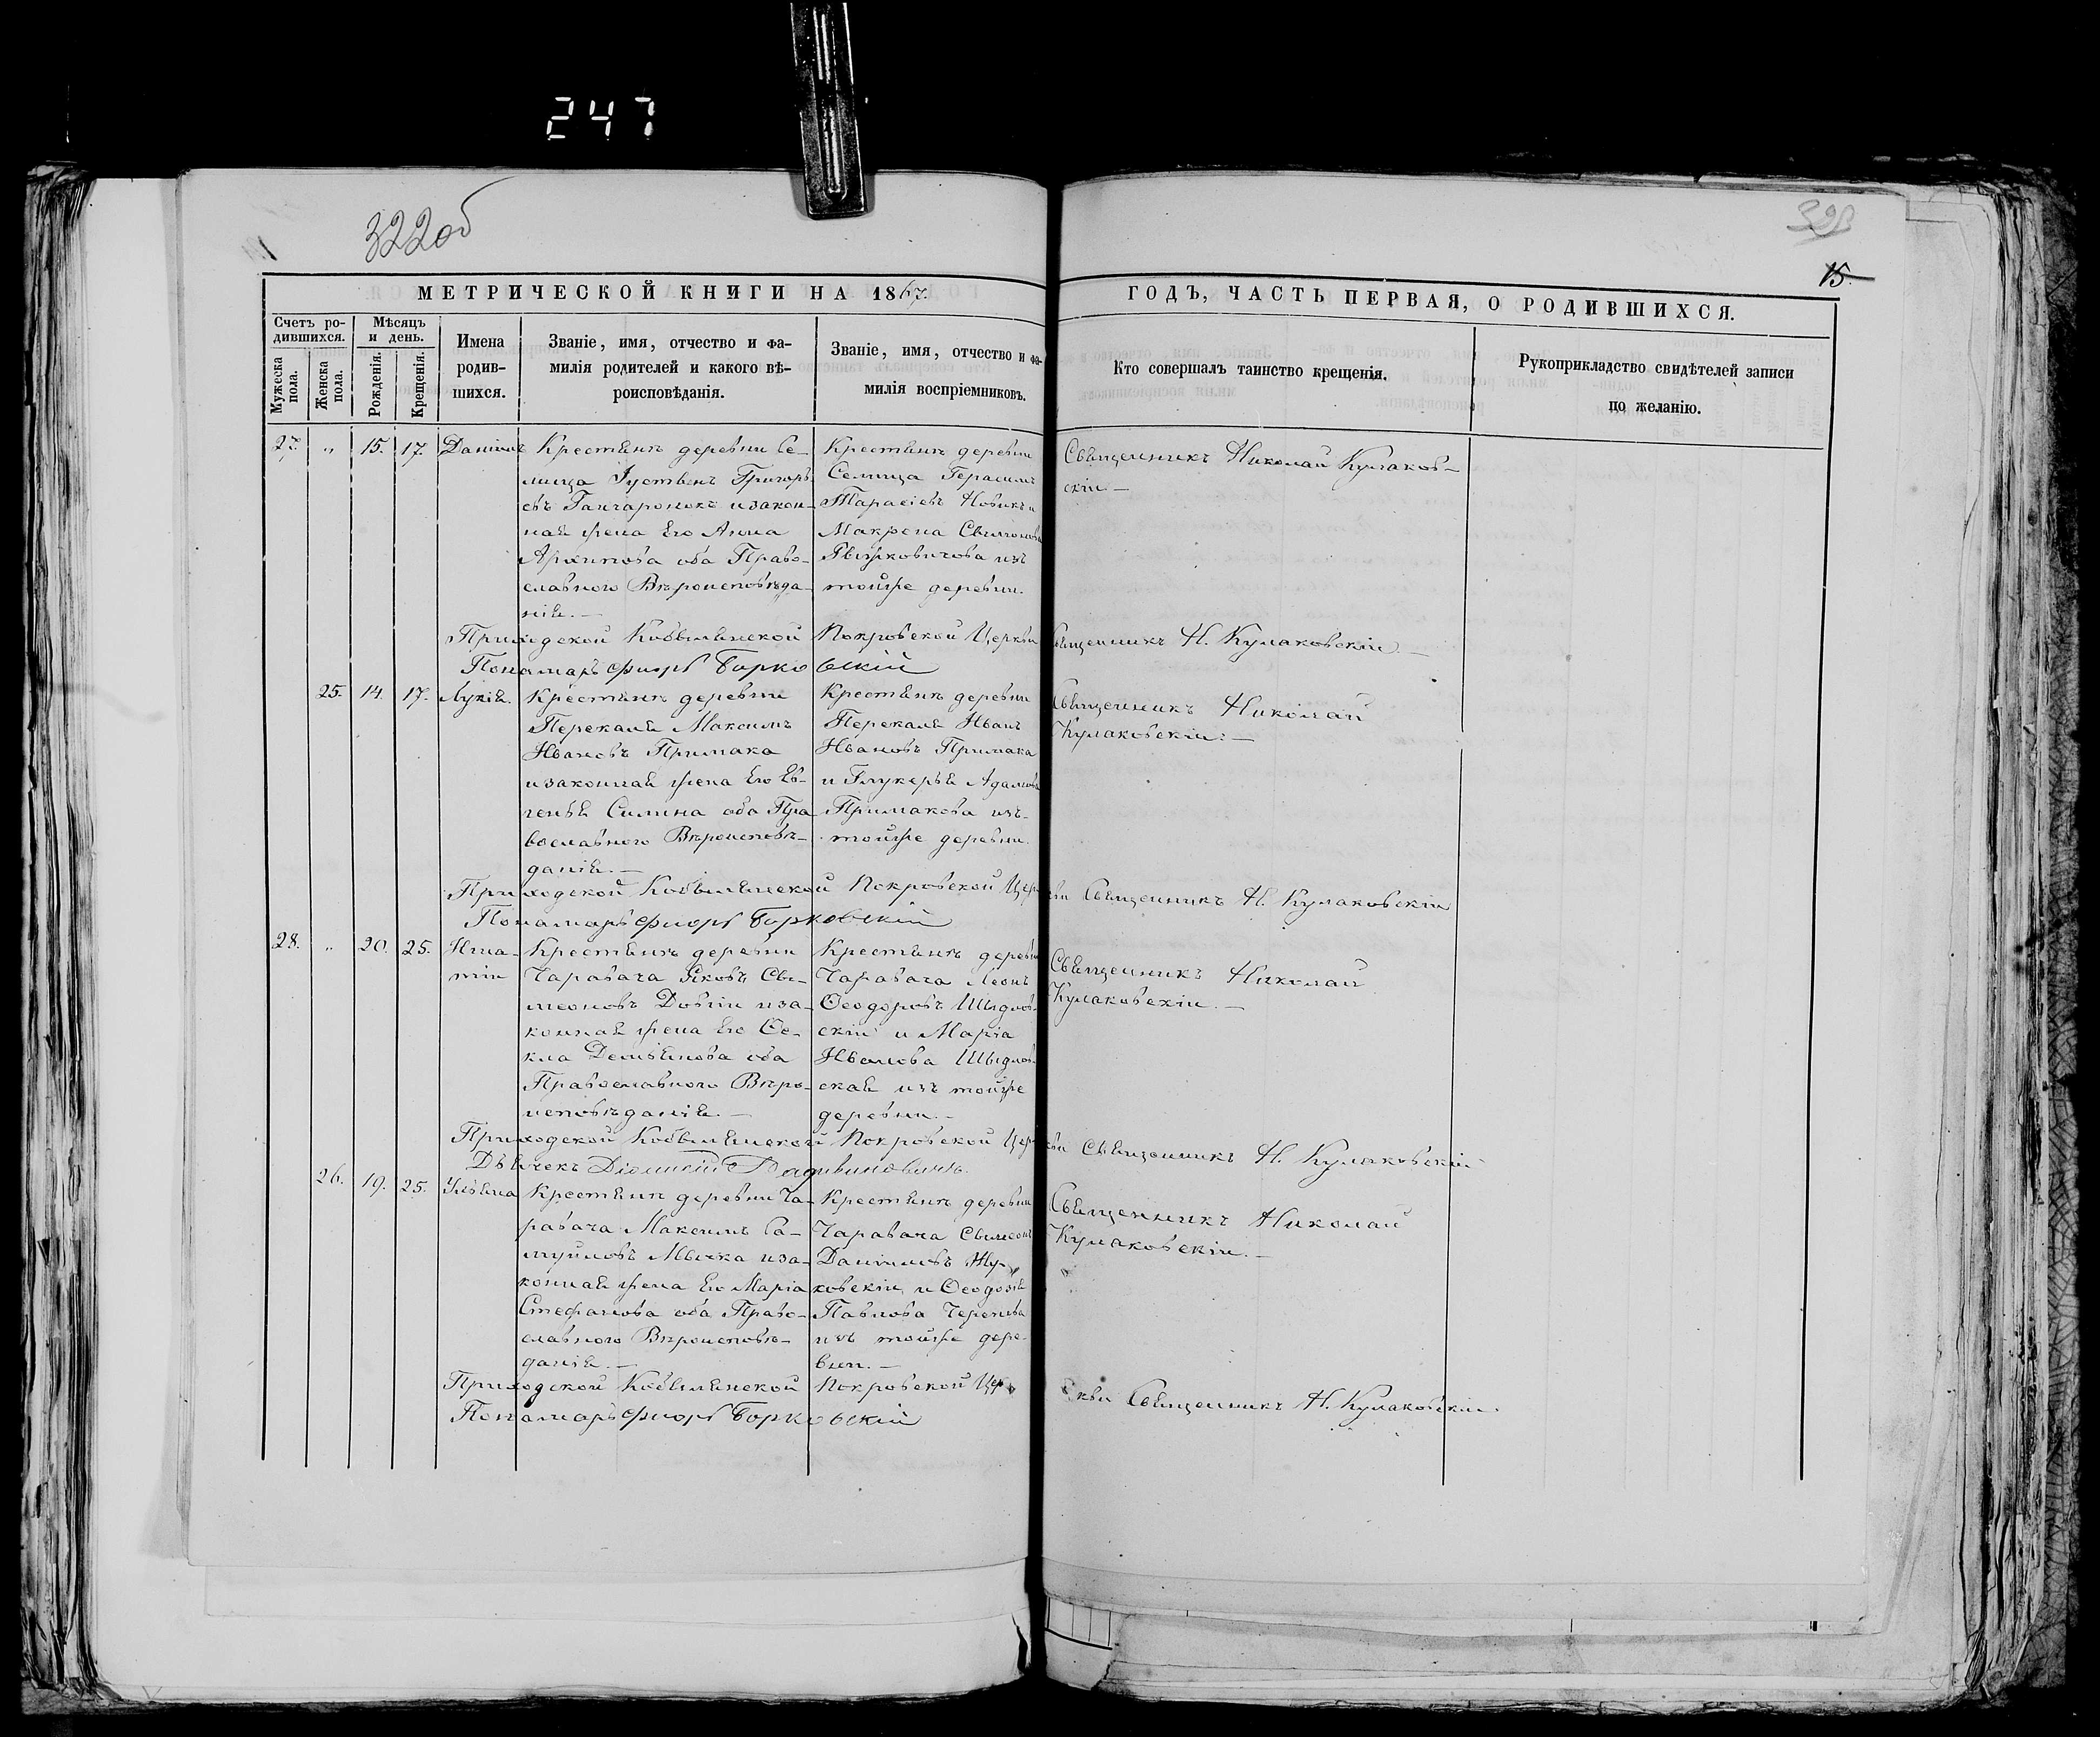 247
322об
15.
МЕТРИЧЕСКОЙ КНИГИ НА 1867.
ГОДЪ, ЧАСТЬ ПЕРВАЯ, О РОДИВШИХСЯ.
Счетъ ро-
дившихся.
Мужеска пола.
Женска пола.
Мѣсяцъ
и день.
Рожденія.
Крещенія.
Имена
родив-
шихся.
Званіе, имя, отчество и фа-
милія родителей и какого вѣ-
роисповѣданія.
Званіе, имя, отчество и фа-
милія воспріемниковъ.
Кто совершалъ таинство крещенія.
Рукоприкладство свидѣтелей записи
по желанію.
27. „ 15. 17. Даніилъ
Крестьянъ деревни Се-
лища Іустинъ Григорь-
евъ Ганчаронокъ и закон-
ная жена Его Анна
Архипова оба Право-
славного Вѣроисповѣда-
нія.—
Крестьянъ деревни
Селища Герасимъ
Тарасіевъ Новикъ и
Макрена
изъ
тойже деревни.
Священникъ Николай Кулаков-
скій.—
Приходской Кобылянской Покровской Церкви Священникъ Н. Кулаковскій.—
Понамарь Борковскій
25. 14. 17. Лукія.
Крестьянъ деревни
Перекаля Максимъ
Ивановъ Примака
и законная жена Его Ев-
генья Силина оба Пра-
вославного Вѣроисповѣ-
данія.—
Крестьянъ деревни
Перекаля Иванъ
Ивановъ Примака
и Глукерья Адамова
Примакова изъ
тойже деревни.
Священникъ Николай
Кулаковскій.—
Приходской Кобылянской Покровской Церкви Священникъ Н. Кулаковскій
Понамарь Борковскій
28. „ 20. 25. Игна-
тій
Крестьянъ деревни
Чарабача Яковъ Си-
меоновъ Довгій и за-
конная жена Его Ѳе-
кла Демьянова оба
Православного Вѣро-
исповѣданія.—
Крестьянъ деревни
Чарабача Леонъ
Ѳеодоровъ Шидлов-
скій и Марія
Иванова Шидлов-
ская изъ тойже
деревни.—
Священникъ Николай
Кулаковскій.—
Приходской Кобылянской Покровской Церкви Священникъ Н. Кулаковскій
Дьячекъ Діонисій
26. 19. 25. Ульяна
Крестьянъ деревни Ча-
рабача Максимъ Са-
муйловъ и за-
конная жена Его Марія
Стефанова оба Право-
славного Вѣроисповѣ-
данія.—
Крестьянъ деревни
Чарабача Симеонъ
Даніиловъ Жу-
ковскій и Ѳеодозія
Павлова
изъ тойже дере-
вни.—
Священникъ Николай
Кулаковскій.—
Приходской Кобылянской Покровской Церкви Священникъ Н. Кулаковскій.
Понамарь Борковскій